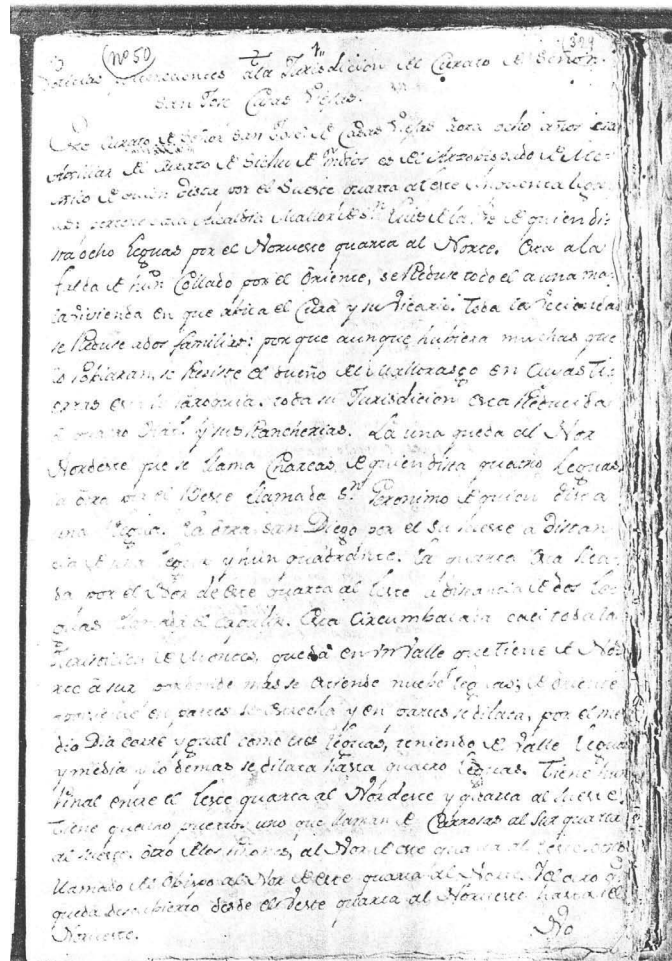 (nº 50)
Noticias pertenecientes â la Jurisdicion del Curato de Señor
San Jose Casas Viejas.
Este Curato de Señor San Jose de Casas Viejas âora ocho años era
Auxiliar del Curato de Sichu de Indios es del Arzovispado de Me-
xico de quien dista por el Sueste quarta al este noventa leguas
pertenece a la Alcaldia Maior de Sn. Luis de la Paz de quien dis
ta ôcho leguas por el Norueste quarta al Norte. Esta a la
falda de hun Collado por el Oriente, se Reduse todo el a una ma
la vivienda en que abita el Cura y su Vicario. Toda la Vecindad
se Reduse a dos familias: porque aunque hubiera muchas que
lo Poblaran, se Resiste el dueño del Maiorasgo en cuyas Tie
rras esta la Parroquia. toda su Jurisdicion esta Reducida
a quatro y sus Rancherias. La una queda al Nor
Nordeste que se llama Charcas, de quien dista quatro Leguas,
la ôtra por el Ueste llamada Sn. Geronimo de quien dista
una Legua. La ôtra San Diego por el Su Sueste a distan
cia de una Legua y hun quadrante. La quarta esta Sita
da por el Nordeste quarta al Leste â distancia de dos Le
guas llamada el Capulin. Esta Circumbalada casi toda la
Jurisdicion de Montes, queda en un Valle que tiene de Nor
te â sur por donde más se estiende nuebe leguas; de Oriente
a poniente en partes se estrecha y en partes se dilata, por el me
dio Dia corre ygual como tres leguas, teniendo de Valle Legua
y media y lo demas se dilata hasta quatro leguas. Tiene hun
final entre el Leste quarta al Nordeste y quarta al Sueste.
Tiene quatro puertos uno que llaman de Carrosas al Sur quarta
al Sueste. ôtro de los, al Nordeste quarta al Leste, otro
llamado del Obispo al Nordeste quarta al Norte. Y el otro q
queda descubierto desde el Ueste quarta al Norueste hasta el
Norueste.
No